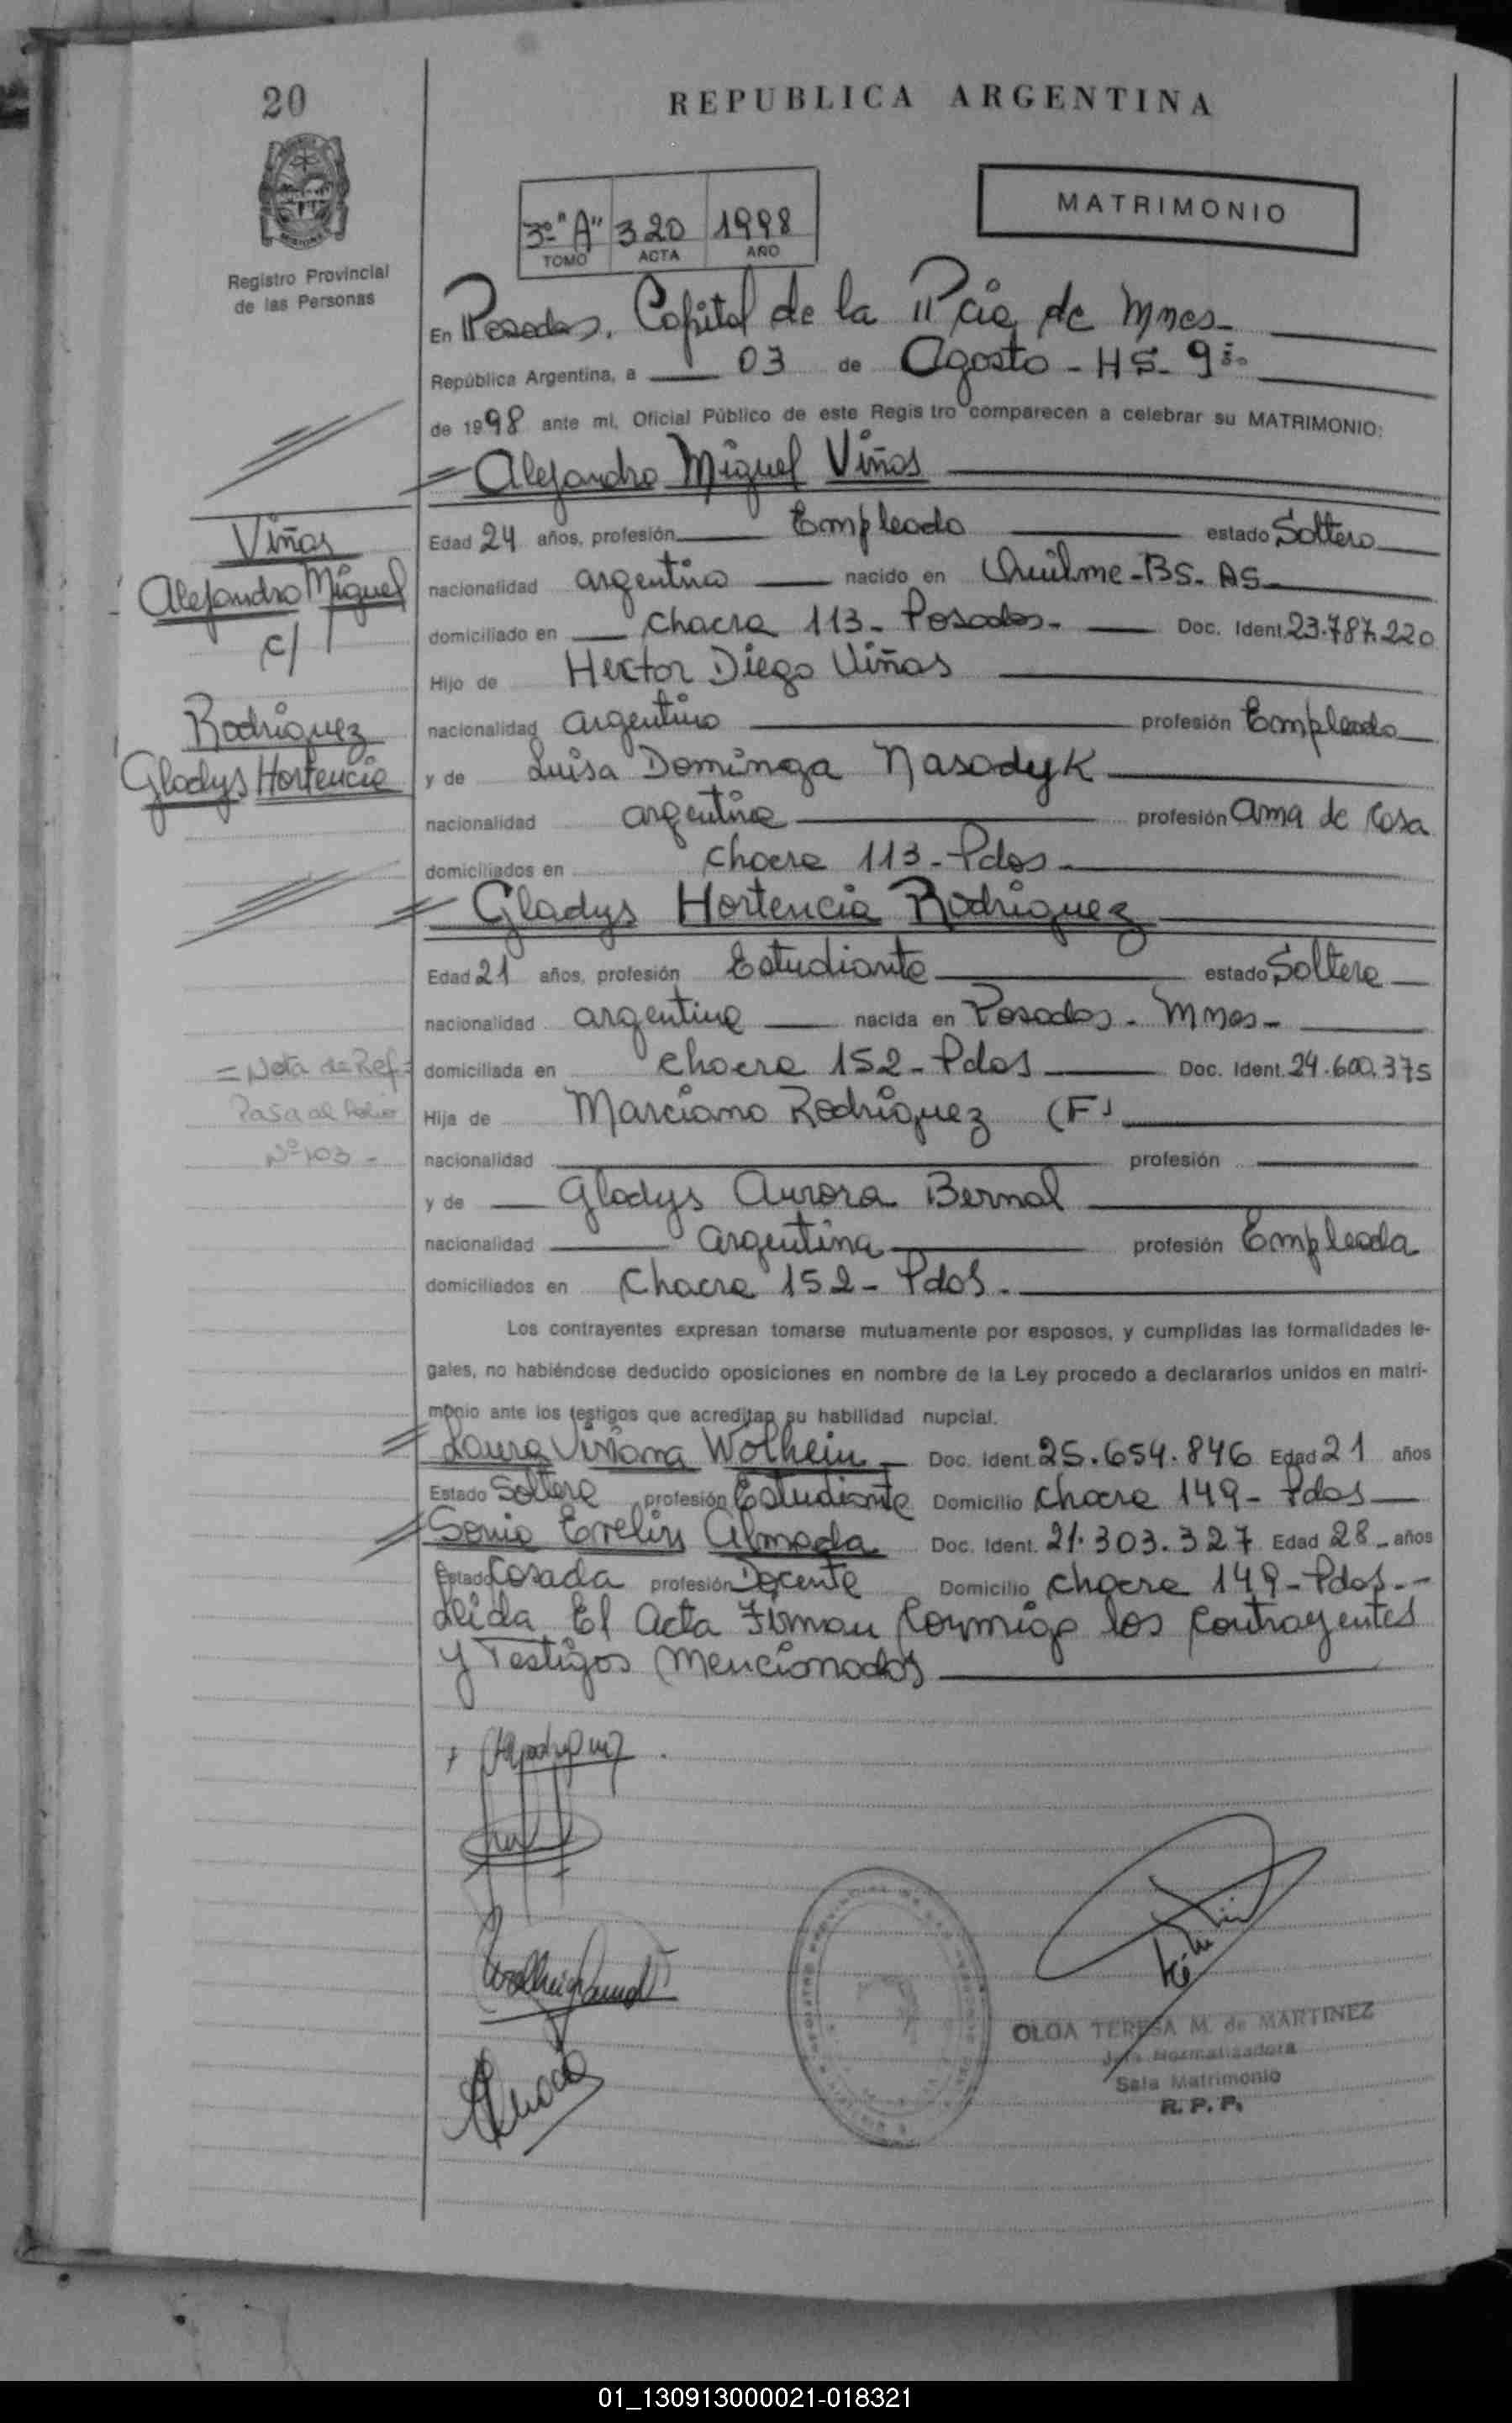 20
REPUBLICA ARGENTINA
MATRIMONIO
3º "A" 320 1998
TOMO ACTA AÑO
Registro Provincial
de las Personas
En Posadas, Capital de la Pcia de Mnes-
República Argentina, a 03 de Agosto - HS. 9
de 1998 ante mi, Oficial Público de este Regis tro comparecen a celebrar su MATRIMONIO:
Alejandro Miguel Viñas
Edad 24 años, profesión Empleado estado Soltero
nacionalidad argentino nacido en Quilme - BS. AS.
domiciliado en Chacra 113 - Posadas - Doc. Ident. 23.787.220
Hijo de Hector Diego Viñas
nacionalidad argentino profesión Empleado
y de Luisa Dominga Nasadyk
nacionalidad argentina profesión ama de casa
domiciliados en Chacra 113 - Pdas -
Viñas
Alejandro Miguel
c/
Rodriguez
Gladys Hortencia
Gladys Hortencia Rodriguez
Edad 21 años, profesión Estudiante estado Soltera
nacionalidad argentina nacida en Posadas - Mnes -
domiciliada en Chacra 152 - Pdas Doc. Ident. 24.600.375
Hija de Marciano Rodriguez (F)
nacionalidad profesión
y de Gladys Aurora Bernal
nacionalidad argentina profesión Empleada
domiciliados en Chacra 152 - Pdas -
= Nota de Ref =
Pasa al folio
Nº 103 -
Los contrayentes expresan tomarse mutuamente por esposos, y cumplidas las formalidades le-
gales, no habiéndose deducido oposiciones en nombre de la Ley procedo a declararlos unidos en matri-
monio ante los testigos que acreditan su habilidad nupcial.
Laura Viviana Wolhein - Doc. Ident. 25.654.846 Edad 21 años
Estado Soltera profesión Estudiante Domicilio Chacra 149 - Pdas
Sonia Evelin Almada Doc. Ident. 21.303.327 Edad 28 - años
Estado Casada profesión Docente Domicilio Chacra 149 - Pdas - -
Leida El Acta Firman Conmigo los Contrayentes
y Testigos Mencionados
OLGA TERESA M. de MARTINEZ
Jefa Normalizadora
Sala Matrimonio
R. P. P.
01_130913000021-018321